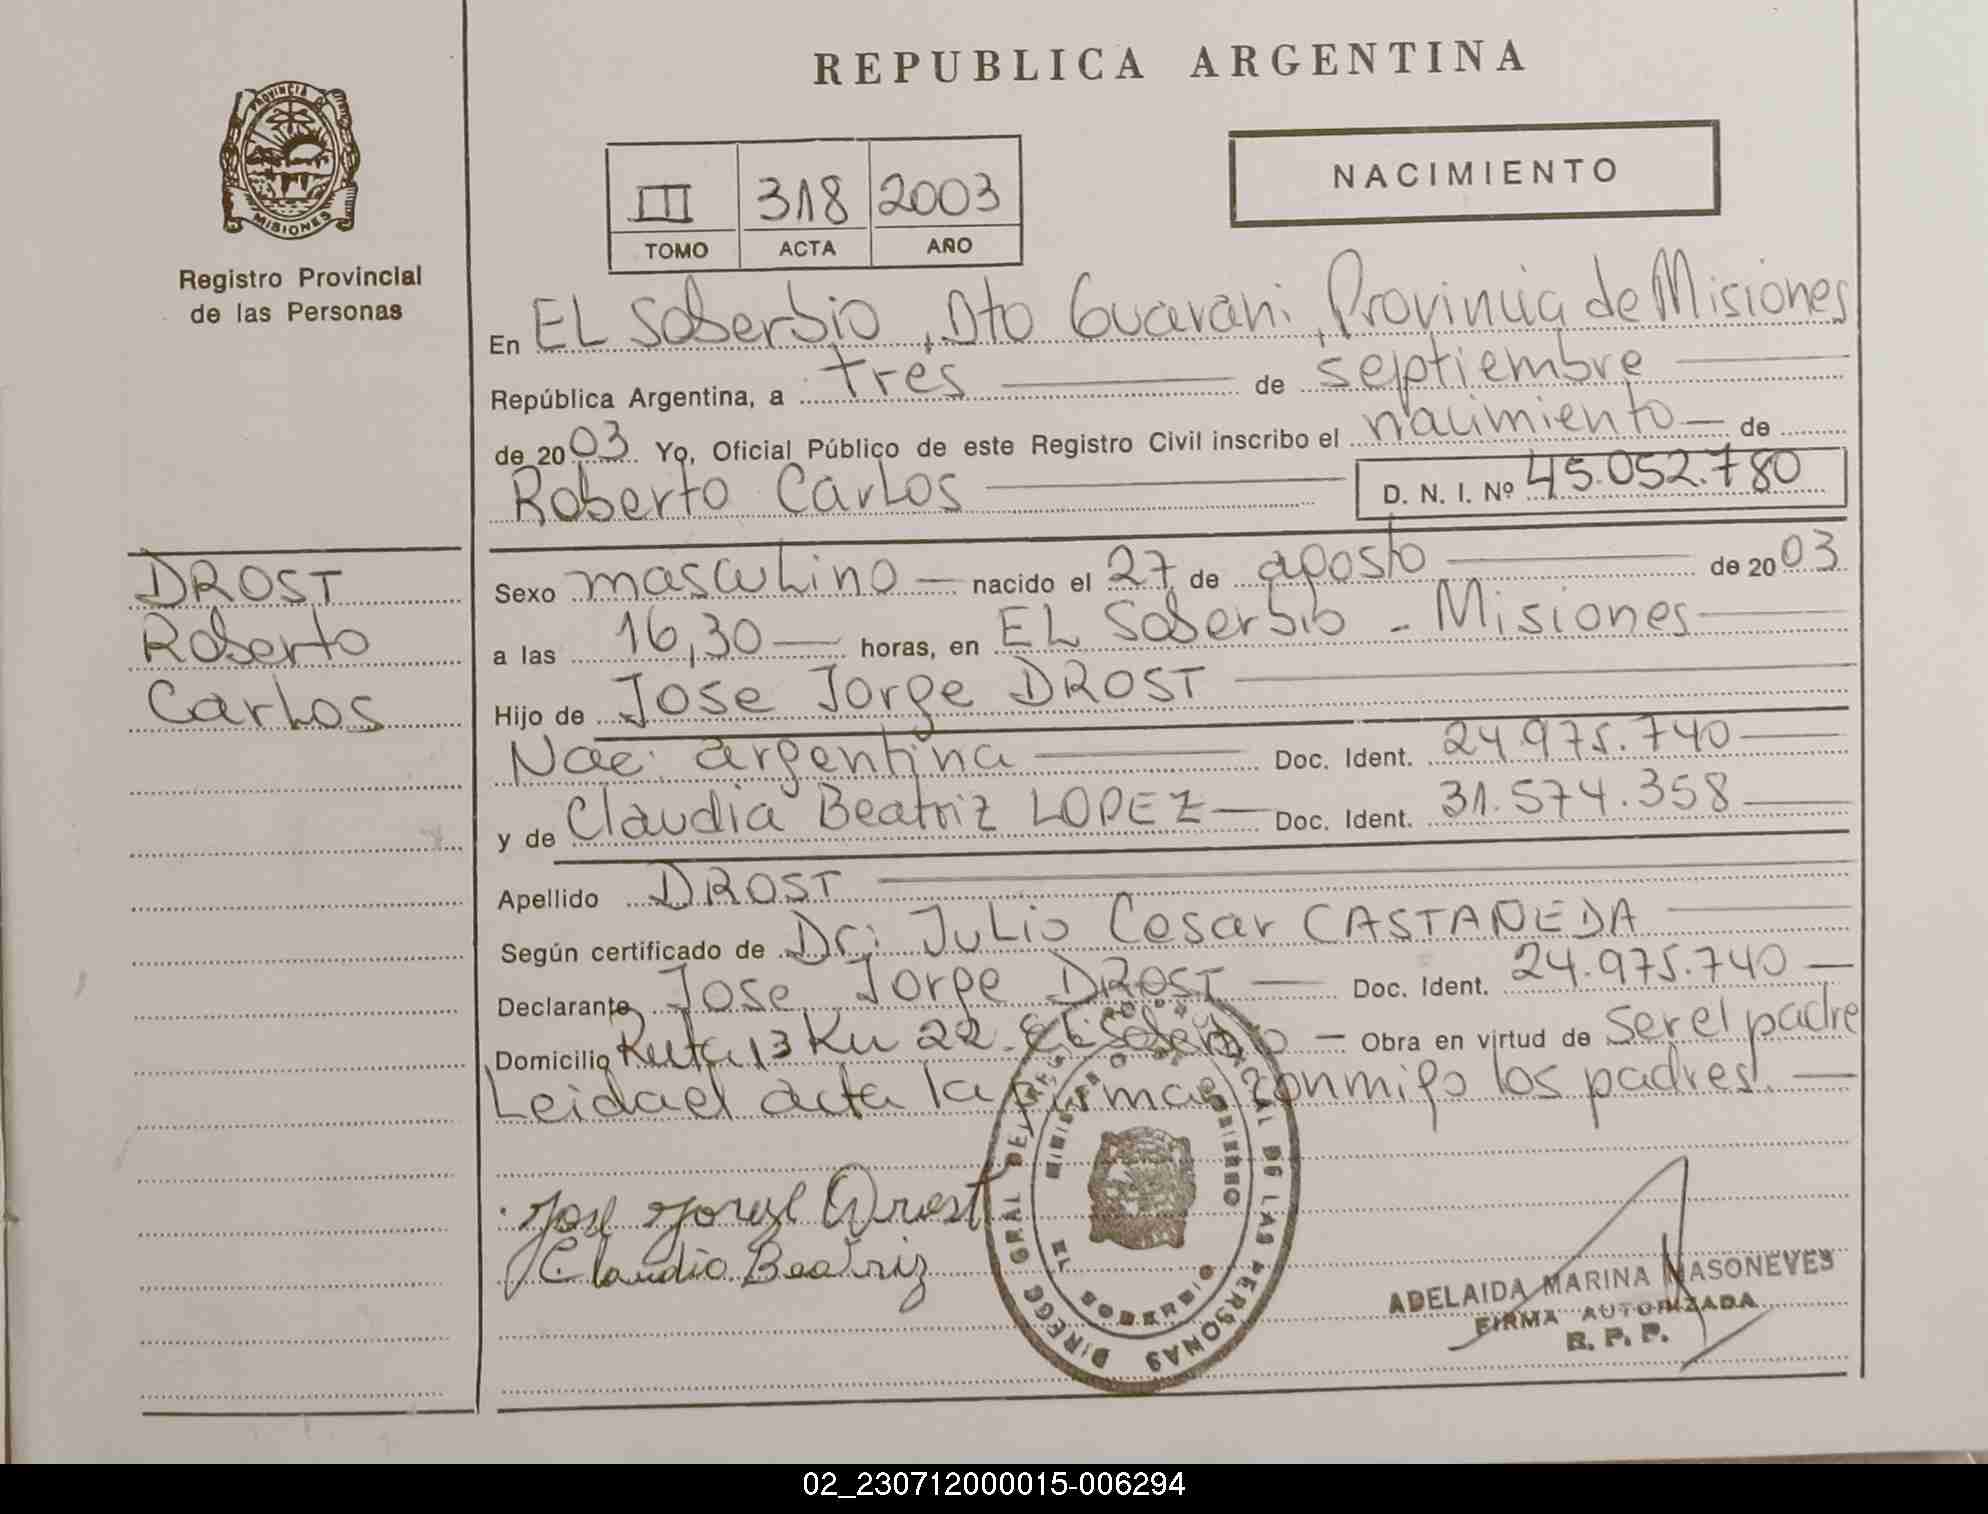 REPUBLICA ARGENTINA
PROVINCIA DE
MISIONES
Registro Provincial
de las Personas
III 318 2003
TOMO ACTA AÑO
NACIMIENTO
En EL Soberbio, Dto Guarani, Provincia de Misiones
República Argentina, a tres de septiembre
de 2003 Yo, Oficial Público de este Registro Civil inscribo el nacimiento de
Roberto Carlos D. N. I. Nº 45.052.780
DROST
Roberto
Carlos
Sexo masculino nacido el 27 de agosto de 2003
a las 16,30 horas, en EL Soberbio - Misiones
Hijo de Jose Jorge DROST
Nac. argentina Doc. Ident. 24.975.740
y de Claudia Beatriz LOPEZ Doc. Ident. 31.574.358
Apellido DROST
Según certificado de Dr: Julio Cesar CASTAÑEDA
Declarante Jose Jorge DROST Doc. Ident. 24.975.740
Domicilio Ruta 13 Km 22. El Soberbio Obra en virtud de ser el padre
Leida el acta la firman conmigo los padres.
Claudia Beatriz
DIRECC GRAL DEL REG. DE LAS PERSONAS
MINISTERIO DE GOBIERNO
ADELAIDA MARINA MASONEVES
FIRMA AUTORIZADA
R. P. P.
02_230712000015-006294